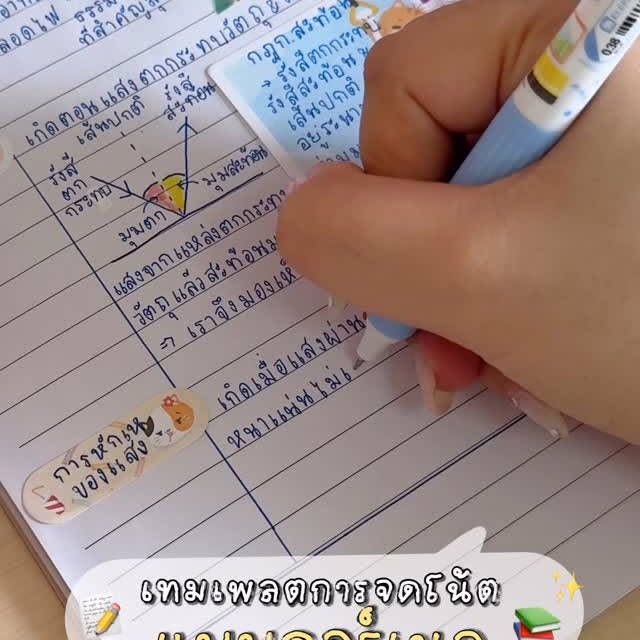 ลอดไฟ
ที่สำคัญ
เกิดตอนแสงตกกระทบวัตถุ
เส้นปกติ
รังสี
สะท้อน
รังสี
ตก
กระทบ
มุมสะท้อน
มุมตก
กฎการสะท้อน
รังสีตกกระทบ
รังสีสะท้อน
เส้นปกติ
อยู่ระนาบ
แสงจากแหล่งตกกระทบ
วัตถุแล้วสะท้อน
⇒ เราจึงมองเห็
การหักเห
ของแสง
เกิดเมื่อแสงผ่าน
หนาแน่นไม่เ
0.38
เทมเพลตการจดโน้ต